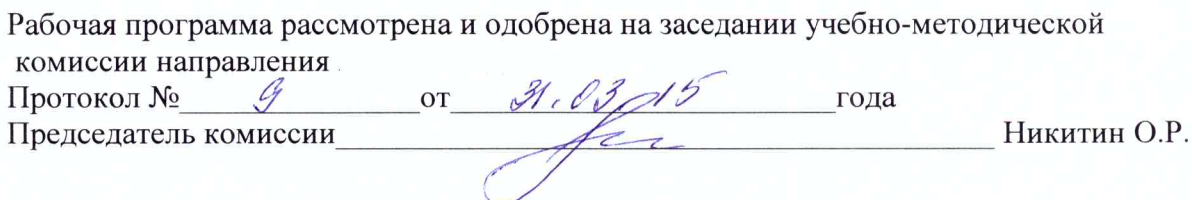 Рабочая программа рассмотрена и одобрена на заседании учебно-методической
комиссии направления
Протокол № 9 от 31.03.15 года
Председатель комиссии Никитин О.Р.